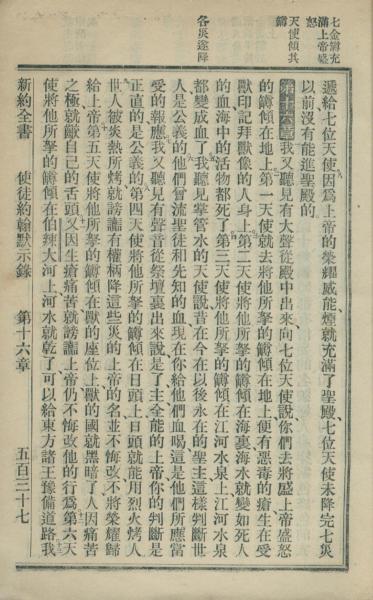 七金罇充
滿上帝盛
怒
天使傾其
罇
各災遂降
遞給七位天使因爲上帝的榮耀威能煙就充滿了聖殿七位天使未降完七災
以前沒有能進聖殿的
第十六章我又聽見有大聲從殿中出來向七位天使說你們去將盛上帝盛怒
的罇傾在地上第一天使就去將他所拏的罇傾在地上便有惡毒的瘡生在受
獸印記拜獸像的人身上第二天使將他所拏的罇傾在海裏海水就變如死人
的血海中的活物都死了第三天使將他所拏的罇傾在江河水泉上江河水泉
都變成血了我聽見掌管水的天使說昔在今在以後永在的聖主這樣判斷世
人是公義的他們曾流聖徒和先知的血現在你給他們血喝這是他們所應當
受的報應我又聽見有聲音從祭壇裏出來說是了主全能的上帝你的判斷是
正直的是公義的第四天使將他所拏的罇傾在日頭上日頭就能用烈火烤人
世人被炎熱所烤就謗讟有權柄降這些災的上帝的名並不悔改不將榮耀歸
給上帝第五天使將他所拏的罇傾在獸的座位上獸的國就黑暗了人因痛苦
之極就齩自己的舌頭又因生瘡痛苦就謗讟上帝仍不悔改他的行爲第六天
使將他所拏的罇傾在伯辣大河上河水就乾了可以給東方諸王豫備道路我
新約全書 使徒約翰默示錄 第十六章 五百三十七